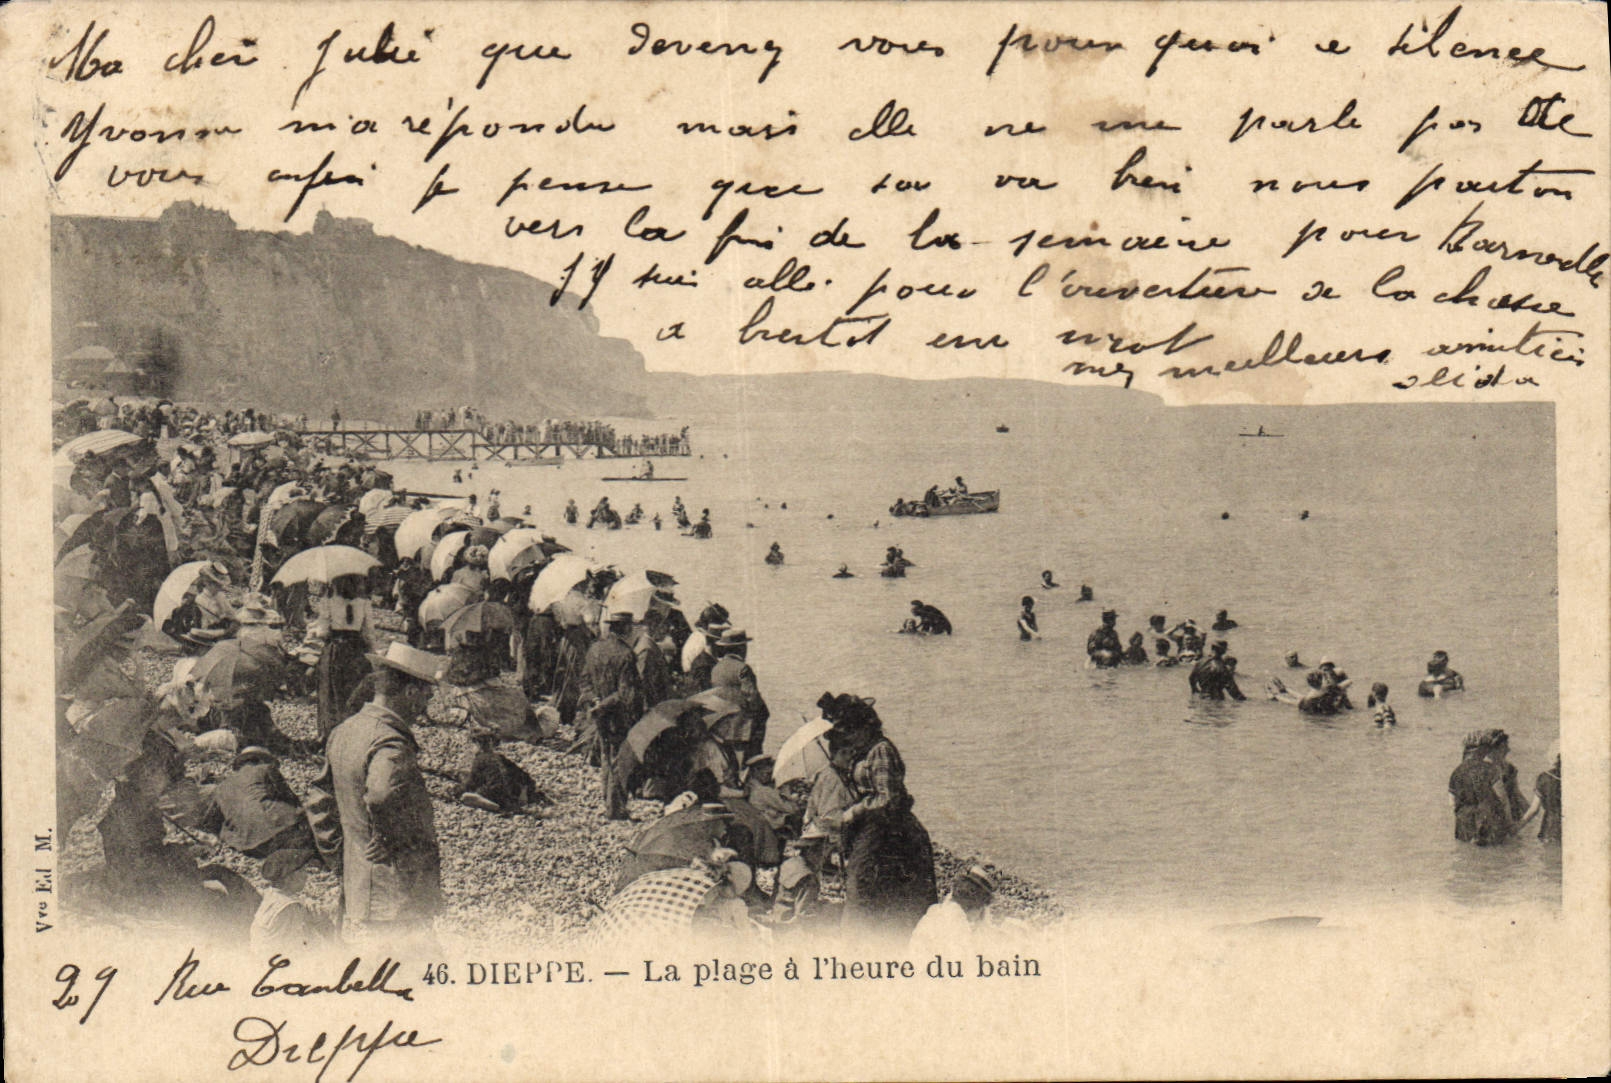 Ma cher Julie que devenez vous pourquoi ce silence
Yvonne m'a répondu mais elle ne me parle pas de
vous enfin je pense que sa va bien nous parton
vers la fin de la semaine pour
J y suis allé pour l'ouverture de la chasse
a bientot un mot
mes meilleurs amitiés
alida
Vve Ed M.
46. DIEPPE. — La plage à l'heure du bain
29 Rue
Dieppe